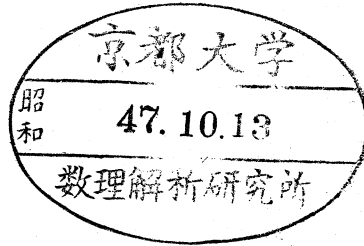 京都大学
昭和
47.10.13
数理解析研究所